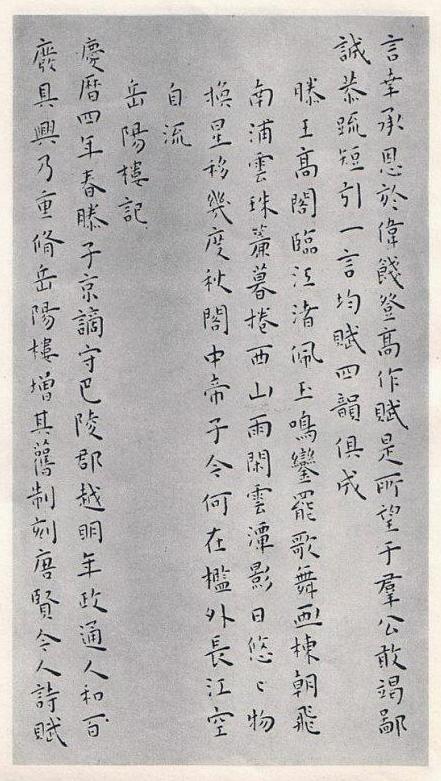 言幸承恩於偉餞登高作賦是所望于羣公敢竭鄙
誠恭疏短引一言均賦四韻俱成
滕王高閣臨江渚佩玉鳴鸞罷歌舞画棟朝飛
南浦雲珠簾暮捲西山雨閑雲潭影日悠〻物
換星移幾度秋閣中帝子今何在檻外長江空
自流
岳陽樓記
慶曆四年春滕子京謫守巴陵郡越明年政通人和百
廢具興乃重脩岳陽樓增其舊制刻唐賢今人詩賦